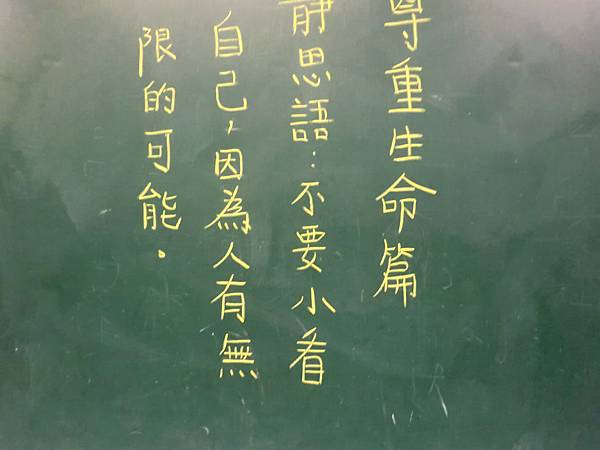 尊重生命篇
靜思語：不要小看
自己，因為人有無
限的可能。